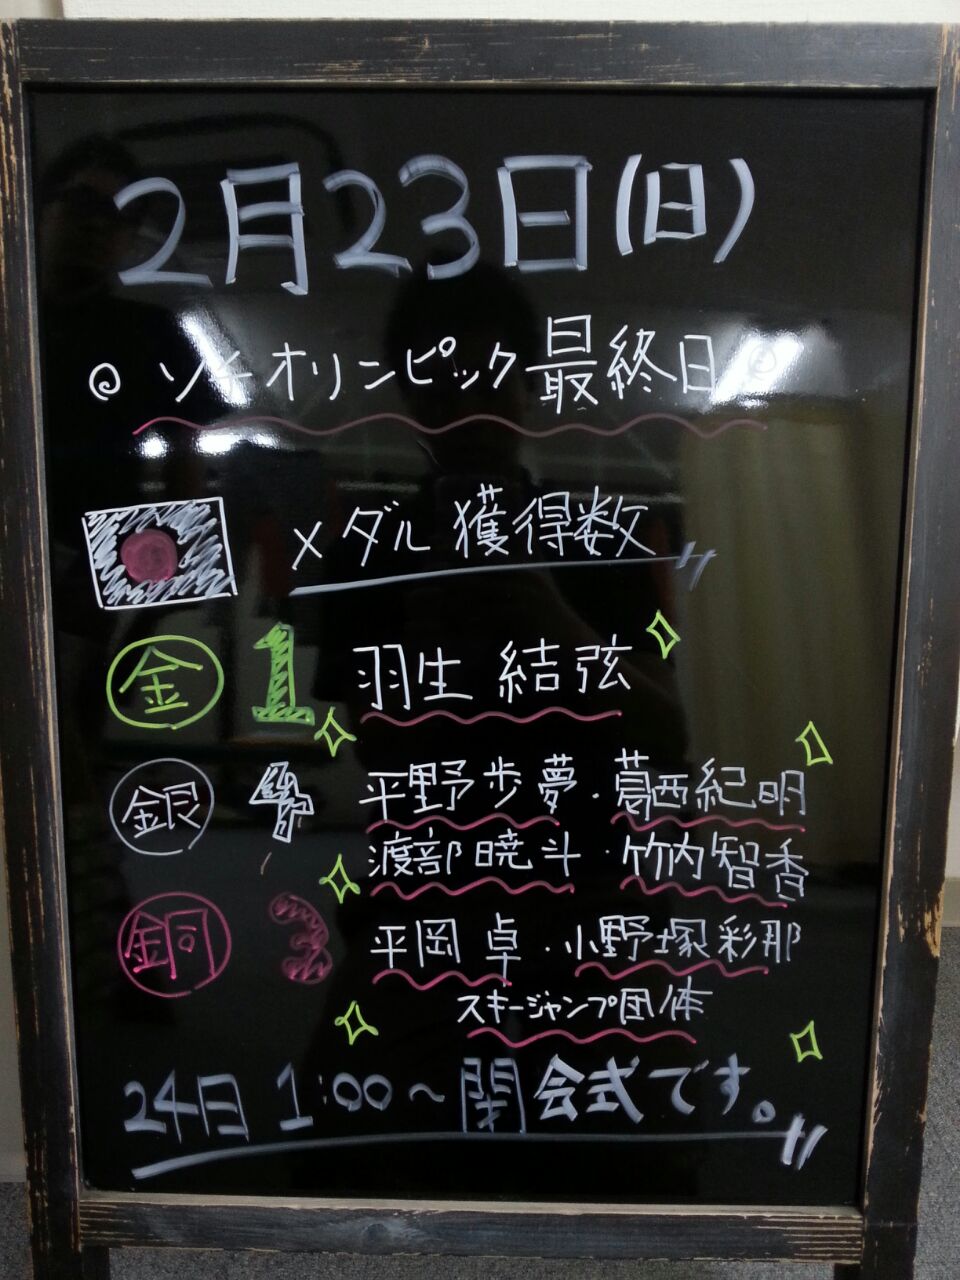 2月23日(日)
ソチオリンピック最終日
メダル獲得数
金 1 羽生 結弦
銀 4 平野歩夢・葛西紀明
渡部暁斗・竹内智香
銅 3 平岡卓・小野塚彩那
スキージャンプ団体
24日 1:00~閉会式です。